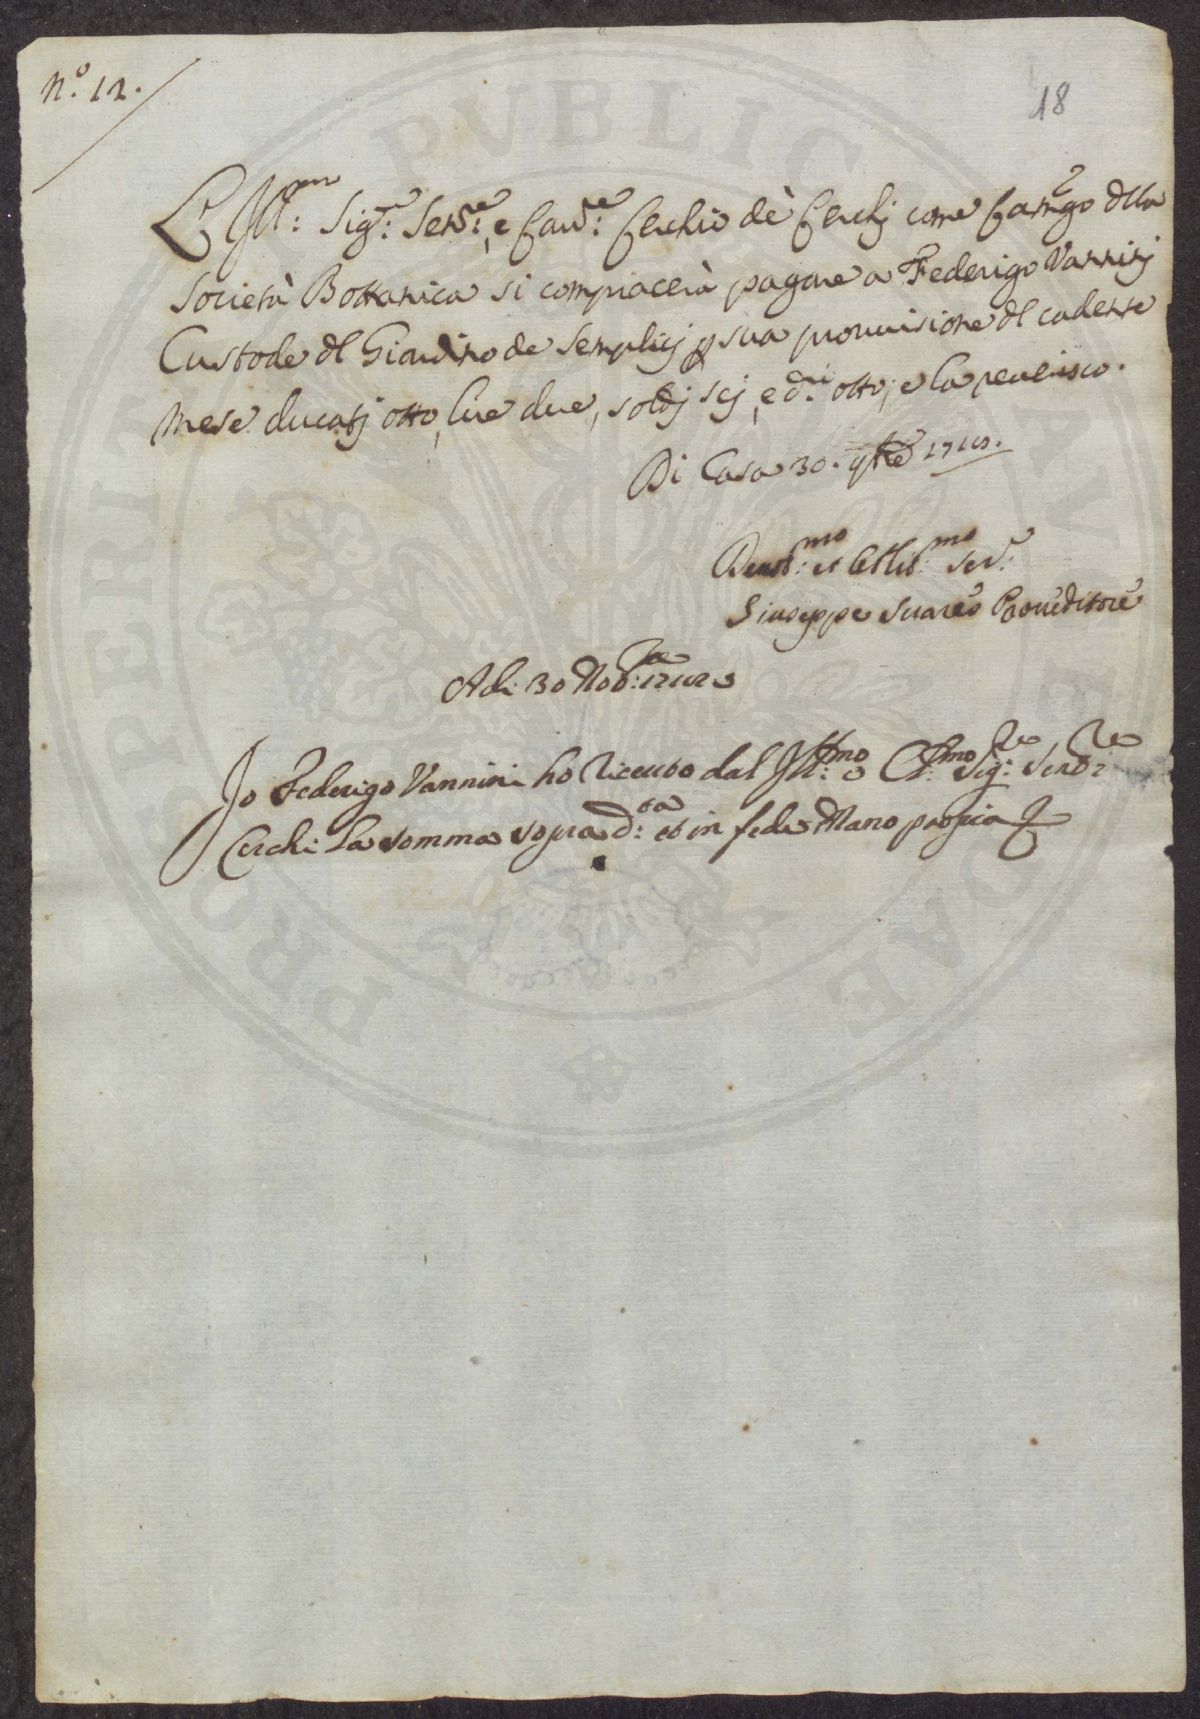 N.º 12.
18
L'Ill.mo Sig.r Sen.re, e Cav.re Cerchio de Cerchj come Camar.go della
Società Bottanica si compiacerà pagare a Federigo Vanninj
Custode del Giardino de Semplicj p sua provvisione del cadente
mese ducatj otto, lire due, soldj sej, e d.ri otto, e la reverisco.
Di Casa 30. 9bre
Devot.mo et Obblig.mo Ser.r
Giuseppe Suares Proveditore
Adi 30 Nov.re
Io Federigo Vannini ho Riceuto dal Ill.mo e Cl.mo Sig.re Send.re
Cerchi La somma soprad.ta et in fede Mano propria